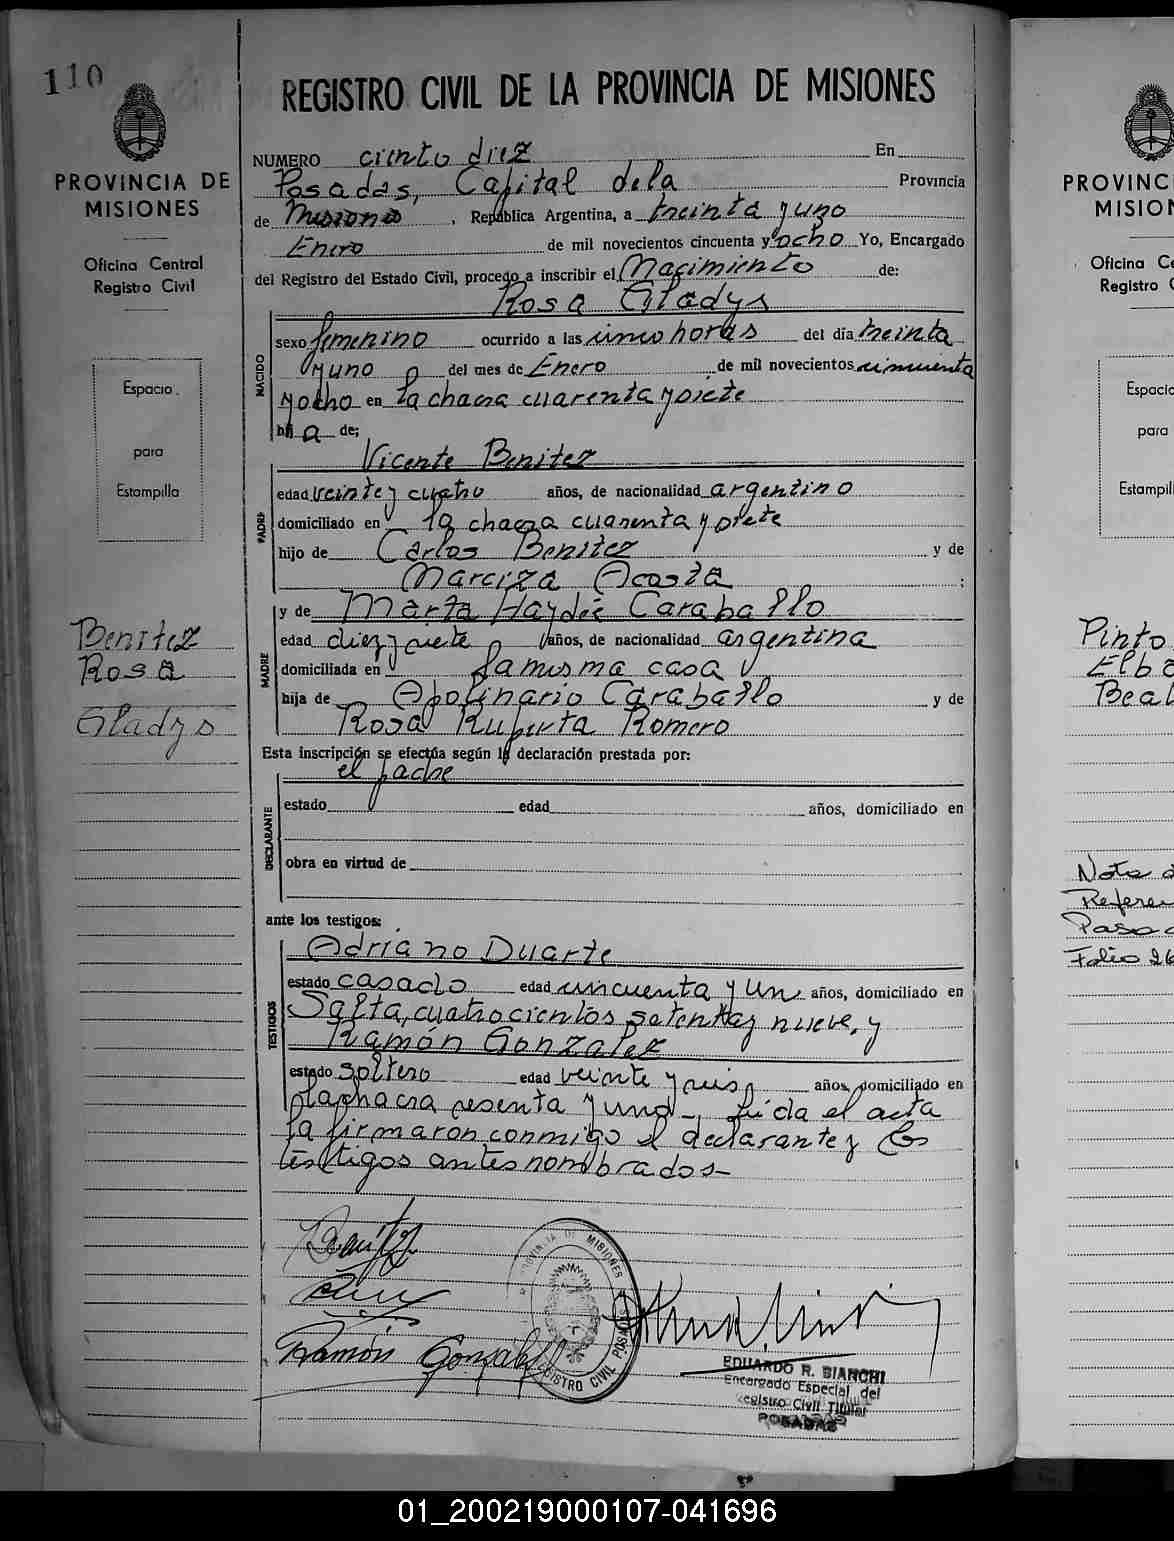 110
PROVINCIA DE
MISIONES
Oficina Central
Registro Civil
Espacio
para
Estampilla
Benitez
Rosa
Gladys
REGISTRO CIVIL DE LA PROVINCIA DE MISIONES
NUMERO ciento diez En
Posadas, Capital dela Provincia
de Misiones, República Argentina, a treinta y uno
Enero de mil novecientos cincuenta y ocho Yo, Encargado
del Registro del Estado Civil, procedo a inscribir el Nacimiento de:
Rosa Gladys
NACIDO
sexo femenino ocurrido a las cinco horas del día treinta
y uno del mes de Enero de mil novecientos cincuenta
y ocho en la chacra cuarenta y siete
hija de;
Vicente Benitez
PADRE
edad veinte y cuatro años, de nacionalidad argentino
domiciliado en la chacra cuarenta y siete
hijo de Carlos Benitez y de
Narciza Acosta ;
y de Marta Haydée Caraballo
MADRE
edad diez y siete años, de nacionalidad argentina
domiciliada en la misma casa
hija de Apolinario Caraballo y de
Rosa Ruperta Romero
Esta inscripción se efectúa según la declaración prestada por:
el padre
DECLARANTE
estado edad años, domiciliado en
obra en virtud de
ante los testigos:
Adriano Duarte
TESTIGOS
estado casado edad cincuenta y un años, domiciliado en
Salta, cuatrocientos setenta y nueve, y
Ramón Gonzalez
estado soltero edad veinte y seis años, domiciliado en
la chacra sesenta y una_, leída el acta
la firmaron conmigo el declarante y los
testigos antes nombrados_
Benitez
Ramón Gonzalez
PROVINCIA DE MISIONES
REGISTRO CIVIL POSADAS
EDUARDO R. BIANCHI
Encargado Especial del
Registro Civil Titular
POSADAS
PROVINC
MISION
Oficina Ce
Registro C
Espacio
para
Estampill
Pinto
Elba
Beat
Nota d
Referen
Paso a
Folio 26
01_200219000107-041696